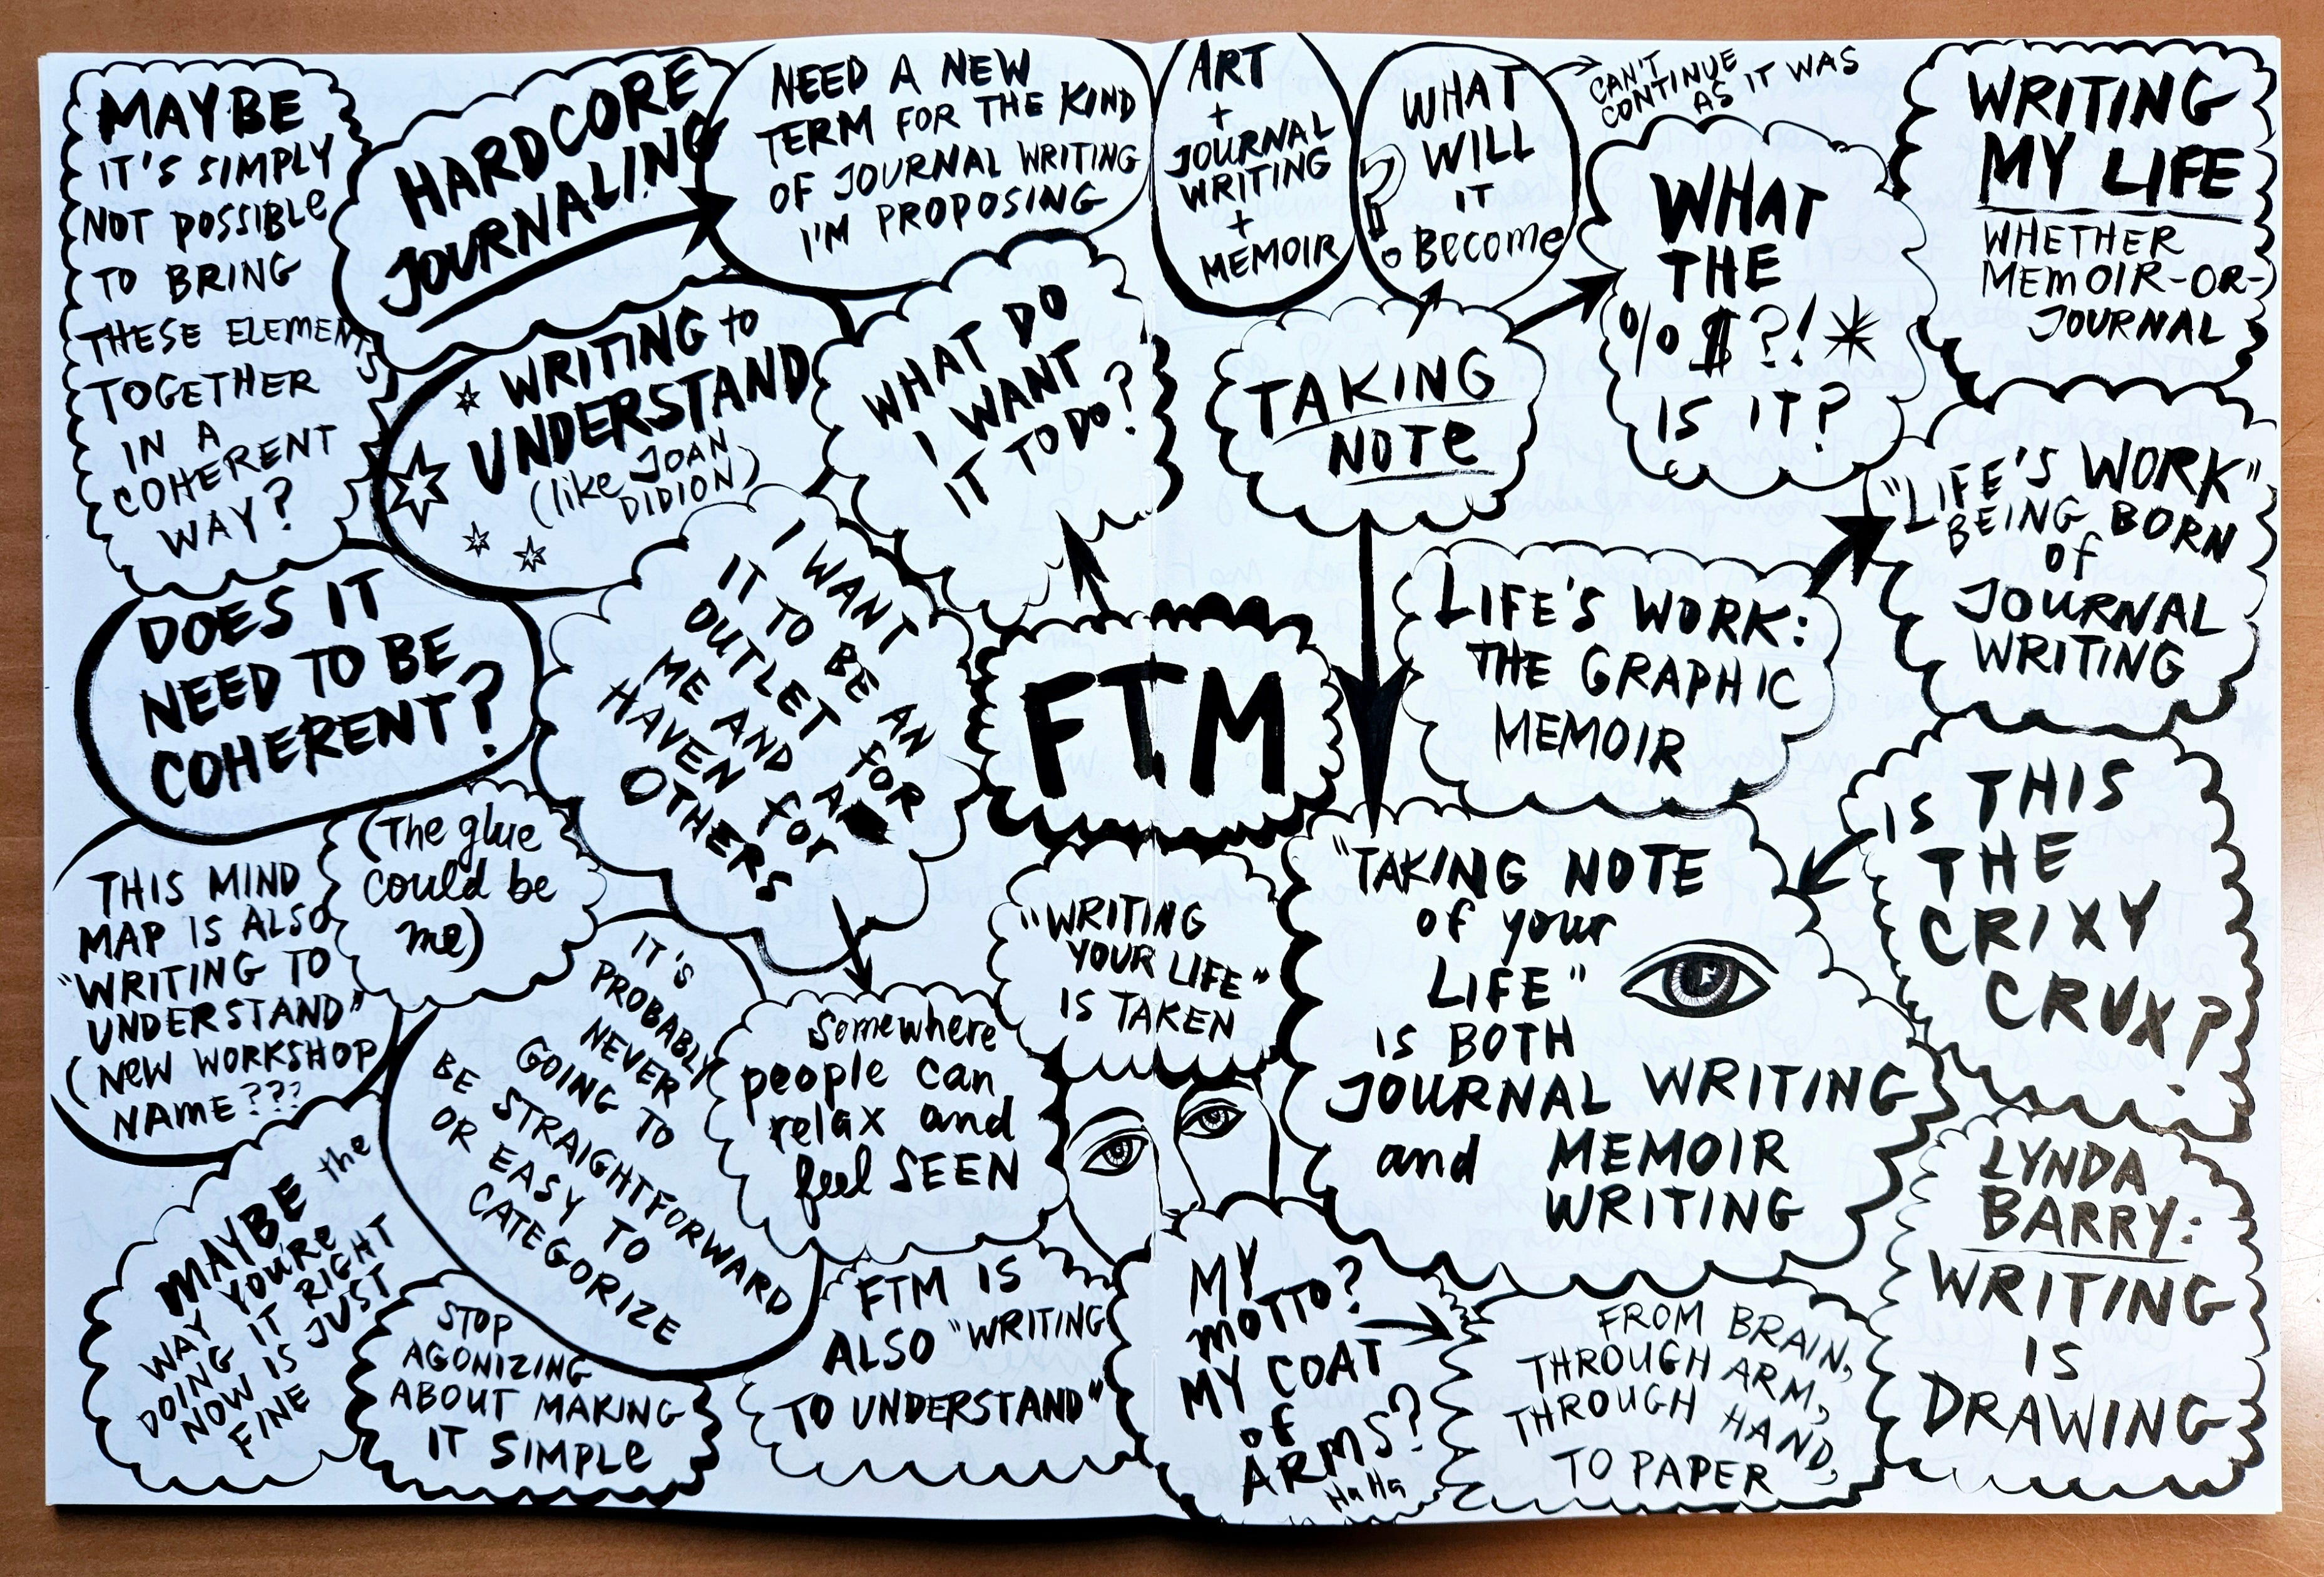 MAYBE
IT'S SIMPLY
NOT POSSIBLE
TO BRING
THESE ELEMENTS
TOGETHER
IN A
COHERENT
WAY?
HARDCORE
JOURNALING
NEED A NEW
TERM FOR THE KIND
OF JOURNAL WRITING
I'M PROPOSING
ART
+
JOURNAL
WRITING
+
MEMOIR
WHAT
WILL
IT
Become
?
CAN'T
CONTINUE
AS IT WAS
WHAT
THE
%$?!*
IS IT?
WRITING
MY LIFE
WHETHER
MEMOIR-OR-
JOURNAL
WRITING to
UNDERSTAND
(like JOAN
DIDION)
WHAT DO
I WANT
IT TO DO?
TAKING
NOTe
"LIFE'S WORK"
BEING BORN
of
JOURNAL
WRITING
DOES IT
NEED TO BE
COHERENT?
I WANT
IT TO BE AN
OUTLET FOR
ME AND A
HAVEN for
OTHERS
FTM
LIFE'S WORK:
THE GRAPHIC
MEMOIR
IS THIS
THE
CRIXY
CRUX?
THIS MIND
MAP IS ALSO
"WRITING TO
UNDERSTAND"
(NeW WORKSHOP
NAME???
(The glue
could be
me)
IT'S
PROBABLY
NEVER
GOING TO
BE STRAIGHTFORWARD
OR EASY TO
CATEGORIZE
Somewhere
people can
relax and
feel SEEN
"WRITING
YOUR LIFE"
IS TAKEN
"TAKING NOTE
of your
LIFE"
IS BOTH
JOURNAL WRITING
and MEMOIR
WRITING
MAYBE the
WAY YOU'Re
DOING IT RIGHT
NOW IS JUST
FINE
STOP
AGONIZING
ABOUT MAKING
IT SIMPLe
FTM IS
ALSO "WRITING
TO UNDERSTAND"
MY
MOTTO?
MY COAT
OF
ARMS?
HaHa
FROM BRAIN,
THROUGH ARM,
THROUGH HAND,
TO PAPER
LYNDA
BARRY:
WRITING
IS
DRAWING